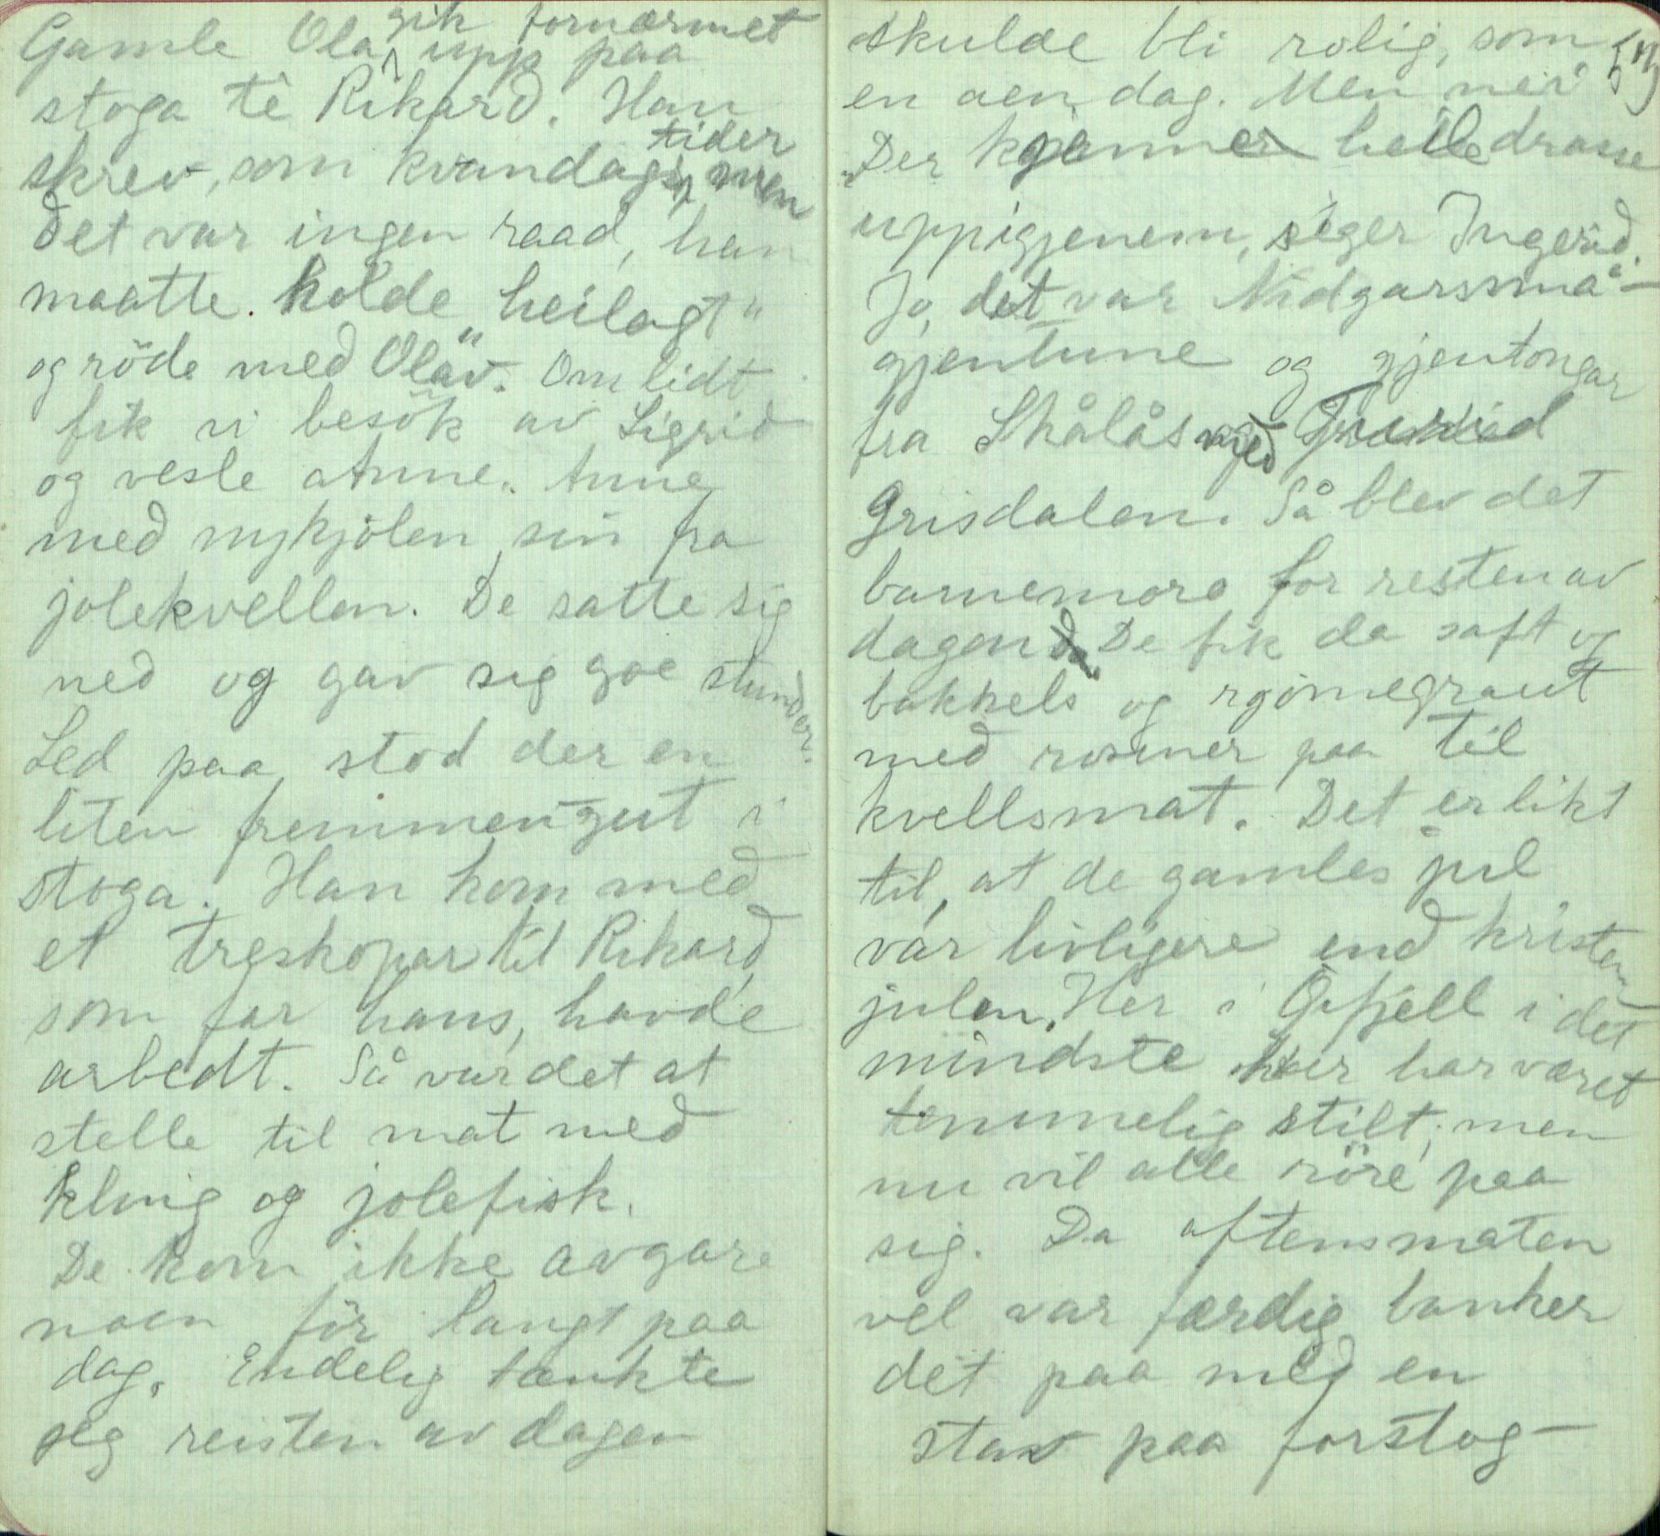 Gamle Ola gik fornærmet upp paa
stoga te Rikard. Han
skrev, som kvandags tider, men
det var ingen raad, han
maatte holde „heilagt"
og røde med Olav. Om lidt
fik vi besök av Sigrid
og vesle Anne. Anne
med nykjolen sin fra
jolekvellen. De satte sig
ned og gav sig goe stunder.
Led paa, stod der en
liten fremmen-gut i
stoga. Han kom med
et treskopar til Rikard,
som far hans, havde
arbedt. Så var det at
stelle til mat med
kling og jolefisk.
De kom ikke avgare
noen för langt paa
dag. Endelig tænkte
jeg reisten av dagen
skulde bli rolig, som
en aen dag. Men nei
Der kjenner heile drasse
uppigjenem, seger Ingerid.
Jo, det var Nidgarssmå-
gjentune og gjentongar
fra Skålås med
Grisdalen. Så blev det
barnemoro for resten av
dagen. De fik da saft og
bakkels og rjømegraut
med rosiner paa til
kvellsmat. Det er likt
til, at de gamles jul
var livligere end kristen
julen. Her i Öifjell i det
mindste her har været
temmelig stilt; men
nu vil alle röre paa
sig. Da aftensmaten
vel var færdig banker
det paa med en
stav paa forstog-